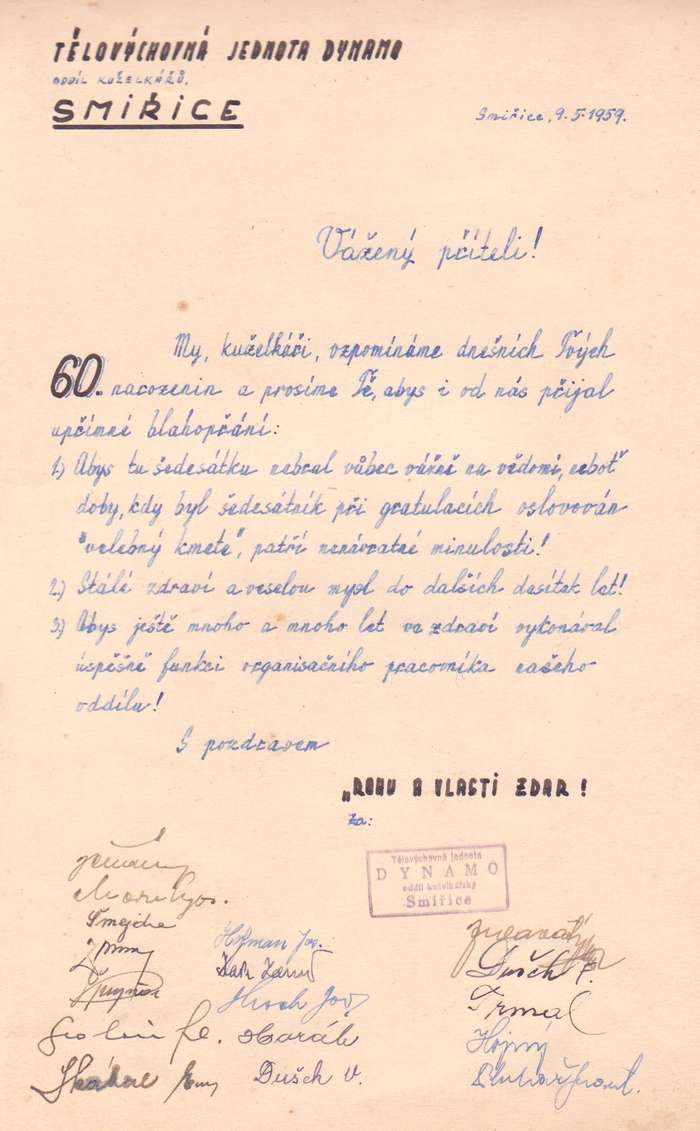 TĚLOVÝCHOVNÁ JEDNOTA DYNAMO
ODDÍL KUŽELKÁŘŮ,
SMIŘICE
Smiřice, 9.5.1959.
Vážený příteli!
My, kuželkáři, vzpomínáme dnešních Tvých
60. narozenin a prosíme Tě, abys i od nás přijal
upřímné blahopřání:
1.) Abys tu šedesátku nebral vůbec vážně na vědomí, neboť
doby, kdy byl šedesátník při gratulacích oslovován
"velebný kmete", patří nenávratné minulosti!
2.) Stálé zdraví a veselou mysl do dalších desítek let!
3.) Abys ještě mnoho a mnoho let ve zdraví vykonával
úspěšně funkci organisačního pracovníka našeho
oddílu!
S pozdravem
„RONU A VLASTI ZDAR!
za:
Tělovýchovná jednota
DYNAMO
oddíl kuželkářský
Smiřice
Šmejda
Hofman Jos.
Dušek F.
Hirsch Jos.
Trmal
Horák
Hojný
Dušek V.